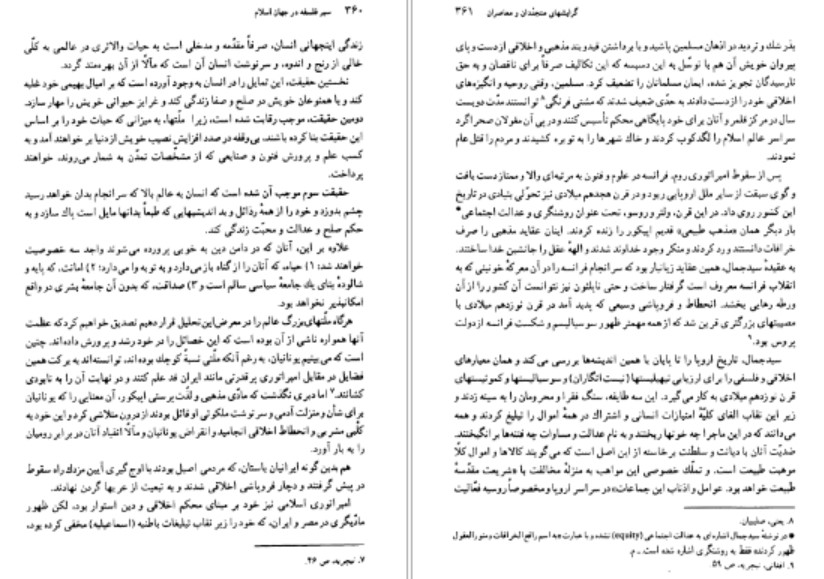 ۳۶۰ سیر فلسفه در جهان اسلام
زندگی اینجهانی انسان، صرفاً مقدّمه و مدخلی است به حیات والاتری در عالمی به کلّی
خالی از رنج و اندوه، و سرنوشت انسان آن است که مآلاً از آن بهره‌مند گردد.
نخستین حقیقت، این تمایل را در انسان به وجود آورده است که بر امیال بهیمی خود غلبه
کند و با همنوعان خویش در صلح و صفا زندگی کند و غرایز حیوانی خویش را مهار سازد.
دومین حقیقت، موجب رقابت شده است، زیرا ملّتها، به میزانی که حیات خود را بر اساس
این حقیقت بنا کرده باشند، بی‌وقفه در صدد افزایش نصیب خویش از دنیا بر خواهند آمد و به
کسب علم و پرورش فنون و صنایعی که از مشخّصات تمدّن به شمار می‌روند، خواهند
پرداخت.
حقیقت سوم موجب آن شده است که انسان به عالم بالا که سرانجام بدان خواهد رسید
چشم بدوزد و خود را از همۀ رذائل و بد اندیشیهایی که طبعاً بدانها مایل است پاك سازد و به
حکم صلح و عدالت و محبّت زندگی کند.
علاوه بر این، آنان که در دامن دین به خوبی پرورده می‌شوند واجد سه خصوصیت
خواهند شد: ۱) حیاء، که آنان را از گناه باز می‌دارد و به توبه وا می‌دارد؛ ۲) امانت، که پایه و
شالودۀ بنای یك جامعۀ سیاسی سالم است و ۳) صداقت، که بدون آن جامعۀ بشری در واقع
امکانپذیر نخواهد بود.
هرگاه ملّتهای بزرگ عالم را در معرض این تحلیل قرار دهیم تصدیق خواهیم کرد که عظمت
آنها همواره ناشی از آن بوده است که این خصائل را در خود رشد و پرورش داده‌اند. چنین
است که می‌بینیم یونانیان، به رغم آنکه ملّتی نسبةً کوچك بوده‌اند، توانسته‌اند به برکت همین
فضایل در مقابل امپراتوری پر قدرتی مانند ایران قد علم کنند و در نهایت آن را به نابودی
کشانند.۷ اما دیری نگذشت که مادّی مذهبی و لذّت پرستی اپیکور، آن معنایی را که یونانیان
برای شأن و منزلت آدمی و سرنوشت ملکوتی او قائل بودند از درون متلاشی کرد و این خود به
کلبی مشربی و انحطاط اخلاقی انجامید و انقراض یونانیان و مآلاً انقیاد آنان در برابر رومیان
را به بار آورد.
هم بدین گونه ایرانیان باستان، که مردمی اصیل بودند با اوج گیری آیین مزدك راه سقوط
در پیش گرفتند و دچار فروپاشی اخلاقی شدند و به تبعیت از عربها گردن نهادند.
امپراتوری اسلامی نیز خود بر مبنای محکم اخلاقی و دین استوار بود، لکن ظهور
مادّیگری در مصر و ایران، که خود را زیر نقاب تبلیغات باطنیه (اسماعیلیه) مخفی کرده بود،
۷. نیچریه، ص ۴۶.
گرایشهای متجدّدان و معاصران ۳۶۱
بذر شك و تردید در اذهان مسلمین پاشید و با برداشتن قید و بند مذهبی و اخلاقی از دست و پای
پیروان خویش آن هم با توسّل به این دسیسه که این تکالیف صرفاً برای ناقصان و به حق
نارسیدگان تجویز شده، ایمان مسلمانان را تضعیف کرد. مسلمین، وقتی روحیه و انگیزه‌های
اخلاقی خود را از دست دادند به حدّی ضعیف شدند که مشتی فرنگی۸ توانستند مدّت دویست
سال در مرکز قلمرو آنان برای خود پایگاهی محکم تأسیس کنند و در پی آن مغولان صحراگرد
سراسر عالم اسلام را لگدکوب کردند و خاك شهرها را به توبره کشیدند و مردم را قتل عام
نمودند.
پس از سقوط امپراتوری روم، فرانسه در علوم و فنون به مرتبه‌ای والا و ممتاز دست یافت
و گوی سبقت از سایر ملل اروپایی ربود و در قرن هجدهم میلادی نیز تحوّلی بنیادی در تاریخ
این کشور روی داد. در این قرن، ولتر و روسو، تحت عنوان روشنگری و عدالت اجتماعی*
بار دیگر همان «مذهب طبیعی» قدیم اپیکور را زنده کردند. اینان عقاید مذهبی را صرف
خرافات دانستند ورد کردند و منکر وجود خداوند شدند و الهۀ عقل را جانشین خدا ساختند.
به عقیدۀ سیدجمال، همین عقاید زیانبار بود که سرانجام فرانسه را در آن معرکۀ خونینی که به
انقلاب فرانسه معروف است گرفتار ساخت و حتی ناپلئون نیز نتوانست آن کشور را از آن
ورطه رهایی بخشد. انحطاط و فروپاشی وسیعی که پدید آمد در قرن نوزدهم میلادی با
مصیبتهای بزرگتری قرین شد که از همه مهمتر ظهور سوسیالیسم و شکست فرانسه از دولت
پروس بود.۹
سیدجمال، تاریخ اروپا را تا پایان با همین اندیشه‌ها بررسی می‌کند و همان معیارهای
اخلاقی و فلسفی را برای ارزیابی نیهیلیستها (نیست انگاران) و سوسیالیستها و کمونیستهای
قرن نوزدهم میلادی به کار می‌گیرد. این سه طایفه، سنگ فقرا و محرومان را به سینه زدند و
زیر این نقاب الغای کلیّۀ امتیازات انسانی و اشتراك در همۀ اموال را تبلیغ کردند و همه
می‌دانند که در این ماجرا چه خونها ریختند و به نام عدالت و مساوات چه فتنه‌ها برانگیختند.
ضدیّت آنان با دیانت و سلطنت برخاسته از این اصل است که می‌گویند کالاها و اموال کلاً
موهبت طبیعت است، و تملّك خصوصی این مواهب به منزلۀ مخالفت با «شریعت مقدّسۀ
طبیعت خواهد بود. عوامل و اذناب این جماعات» در سراسر اروپا و مخصوصاً روسیه فعالیت
۸. یعنی، صلیبیان.
* در نوشتۀ سیدجمال اشاره‌ای به عدالت اجتماعی (equity) نشده و با عبارت «به اسم رافع الخرافات و منور العقول
ظهور کردند» فقط به روشنگری اشاره شده است ـ م.
۹. افغانی، نیچریه، ص ۵۹.